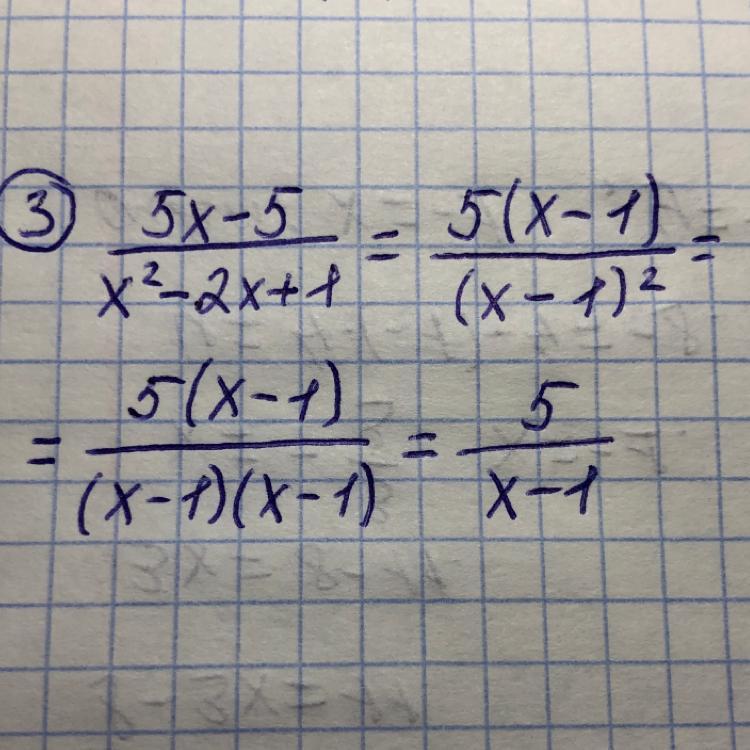 ③ (5x-5)/(x²-2x+1) = (5(x-1))/((x-1)²) =
= (5(x-1))/((x-1)(x-1)) = 5/(x-1)